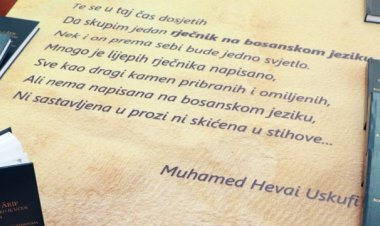 Te se u taj čas dosjetih
Da skupim jedan rječnik na bosanskom jeziku
Nek i on prema sebi bude jedno svjetlo.
Mnogo je lijepih rječnika napisano,
Sve kao dragi kamen pribranih i omiljenih,
Ali nema napisana na bosanskom jeziku,
Ni sastavljena u prozi ni skićena u stihove...
Muhamed Hevai Uskufi
ARIF